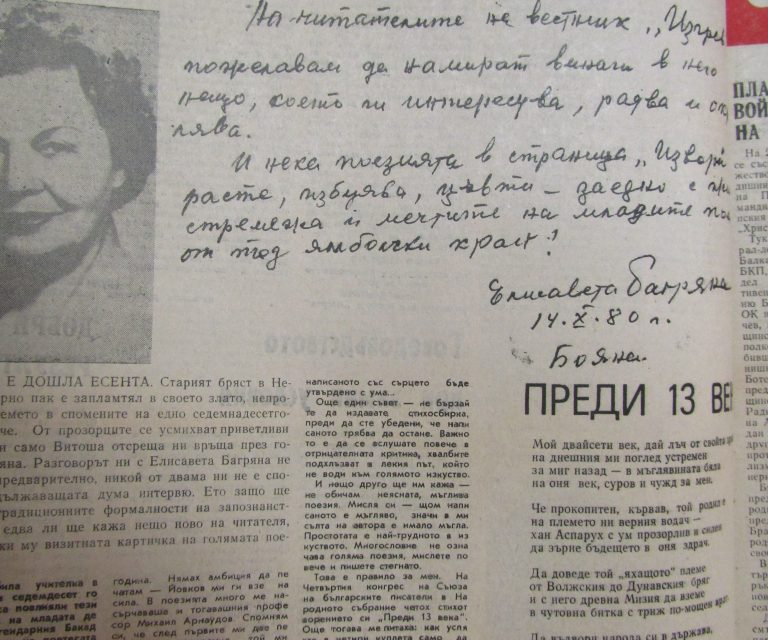 На читателите на вестник „Изгрев
пожелавам да намират винаги в него
нещо, което ги интересува, радва и
лява.
И нека поезията в страница „Извори
расте, избуява, цъвти – заедно с
стремежа и мечтите на младите
от този ямболски край!
Елисавета Багряна
14.X.80 г.
Бояна
ПРЕДИ 13 ВЕ
Е ДОШЛА ЕСЕНТА. Старият бряст в Не-
рно пак е запламтял в своето злато, непро-
емето в спомените на едно седемнадесетго-
че. От прозорците се усмихват приветливи
и само Витоша отсреща ни връща през го-
яна. Разговорът ни с Елисавета Багряна не
предварително, никой от двама ни не е спо-
дължаващата дума интервю. Ето защо ще
традиционните формалности на запознанст-
едва ли ще кажа нещо ново на читателя,
ки му визитната картичка на голямата пое-
била учителка в
и седемдесет го
ка повлияли тези
на младата де
гендарния Бакад
година. Нямах амбиция да пе
чатам — Йовков ми ги взе на
сила. В поезията много ме на
сърчаваше и тогавашния профе
сор Михаил Арнаудов. Спомням
си, че след първите ми две пе
написаното със сърцето бъде
утвърдено с ума...
Още един съвет — не бързай
те да издавате стихосбирка,
преди да сте уверени, че напи
саното трябва да остане. Важно
то е да се вслушате повече в
отрицателната критика, хвалбите
подхлъзват в лекия път, който
не води към голямото изкуство.
И нещо друго ще им кажа —
не обичам неясната, мъглива
поезия. Мисля си — щом напи
саното е мъгляво, значи в ми
сълта на автора е имало мъгла.
Простотата е най-трудното в из
куството. Многословие не озна
чава голяма поезия, мислете по
вече и пишете стегнато.
Това е правило за мен. На
Четвъртия конгрес на Съюза
на българските писатели в На
родното събрание четох стихот
ворението си „Преди 13 века".
Още тогава ме питаха: как успя
Мой двайсети век, дай лъч от своята
на днешния ми поглед устремен
за миг назад — в мъглявината бяла
на оня век, суров и чужд за мен.
Че прокопитен, кървав, той
на племето ни верния водач —
хан Аспарух с ум прозорлив и силен
да зърне бъдещето в оня здрач.
Да доведе той „яхащото" племе
от Волжския до Дунавския бряг
и с него древна Мизия да вземе
в чутовна битка с триж по-мощен враг
ПЛА
ВОЙ
НА